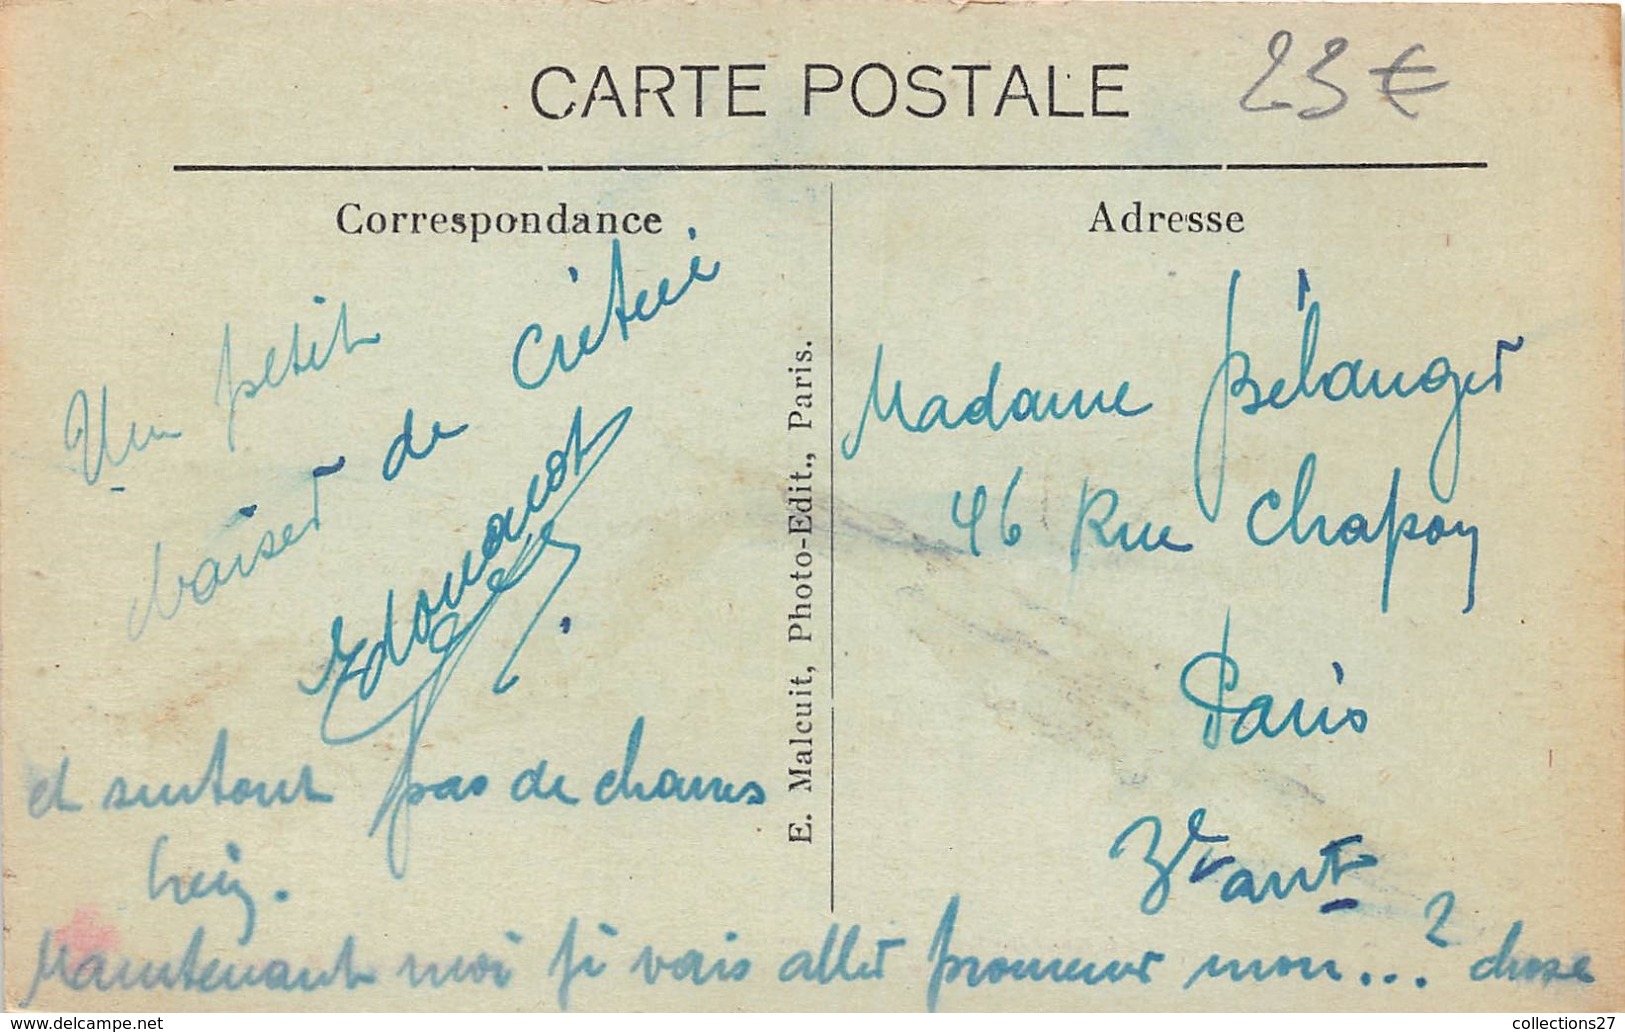 CARTE POSTALE
23€
Correspondance
Un petit
baiser de Créteil
Edouard
et surtout pas de charres
hein.
Maintenant moi je vais aller promener mon...? chose
E. Malcuit, Photo-Edit., Paris.
Adresse
Madame Bélanger
46 Rue Chapon
Paris
3e arrt
delcampe.net
collections27